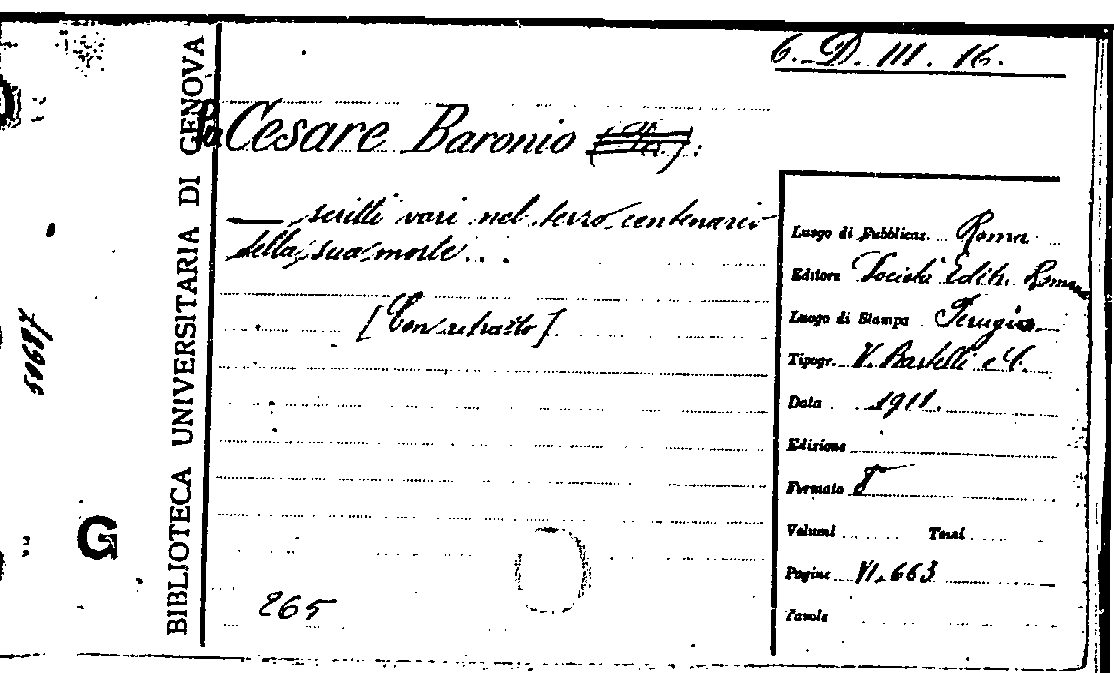 6. D. III. 16.
BIBLIOTECA UNIVERSITARIA DI GENOVA
Per Cesare Baronio
— scritti vari nel terzo centenario
della sua morte...
[Con ritratto]
265
Luogo di Pubblicaz. Roma
Editore Società Editr. Romana
Luogo di Stampa Perugia
Tipogr. V. Bartelli e C.
Data 1911.
Edizione
Formato 8
Volumi Tomi
Pagine VI, 663
Tavole
G